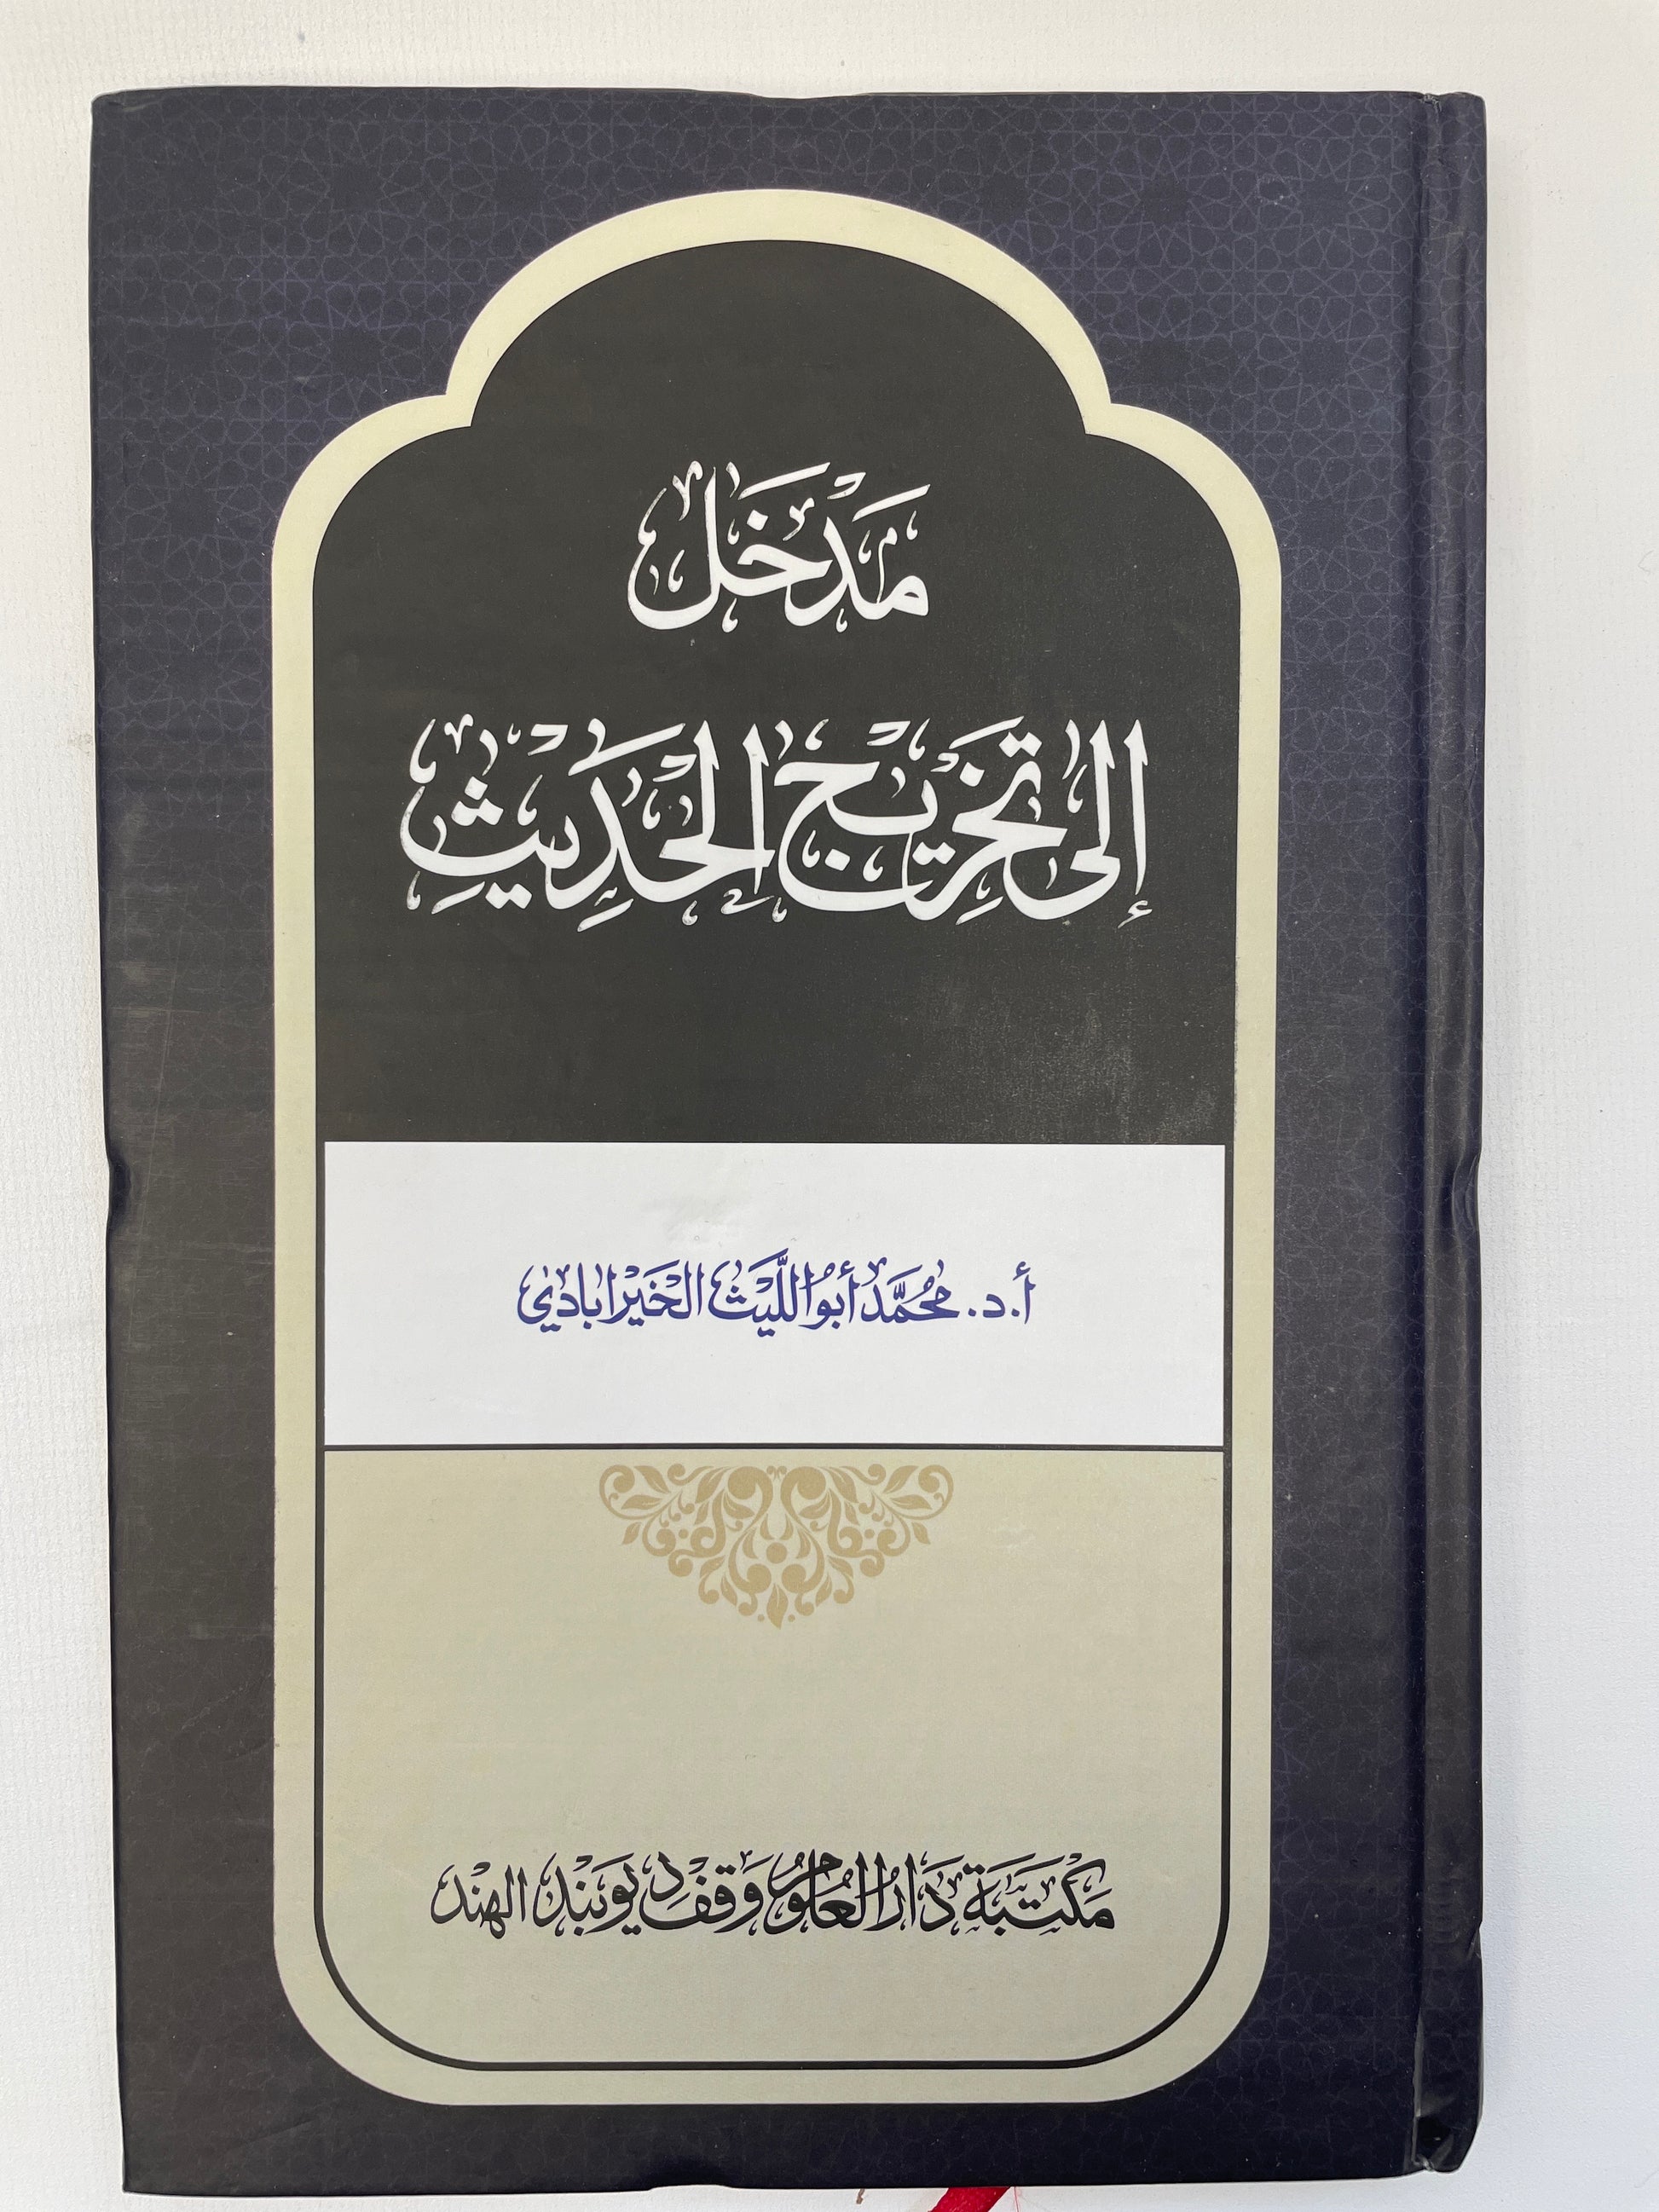 مَدْخَل
إِلى تَخْرِيْج الْحَدِيْثِ
أ.د. مُحَمَّد أَبُو اللَّيْث الْخَيْرابادي
مَكْتَبَة دَارُ الْعُلُوم وَقْف دِيُوبَنْد الْهِنْد